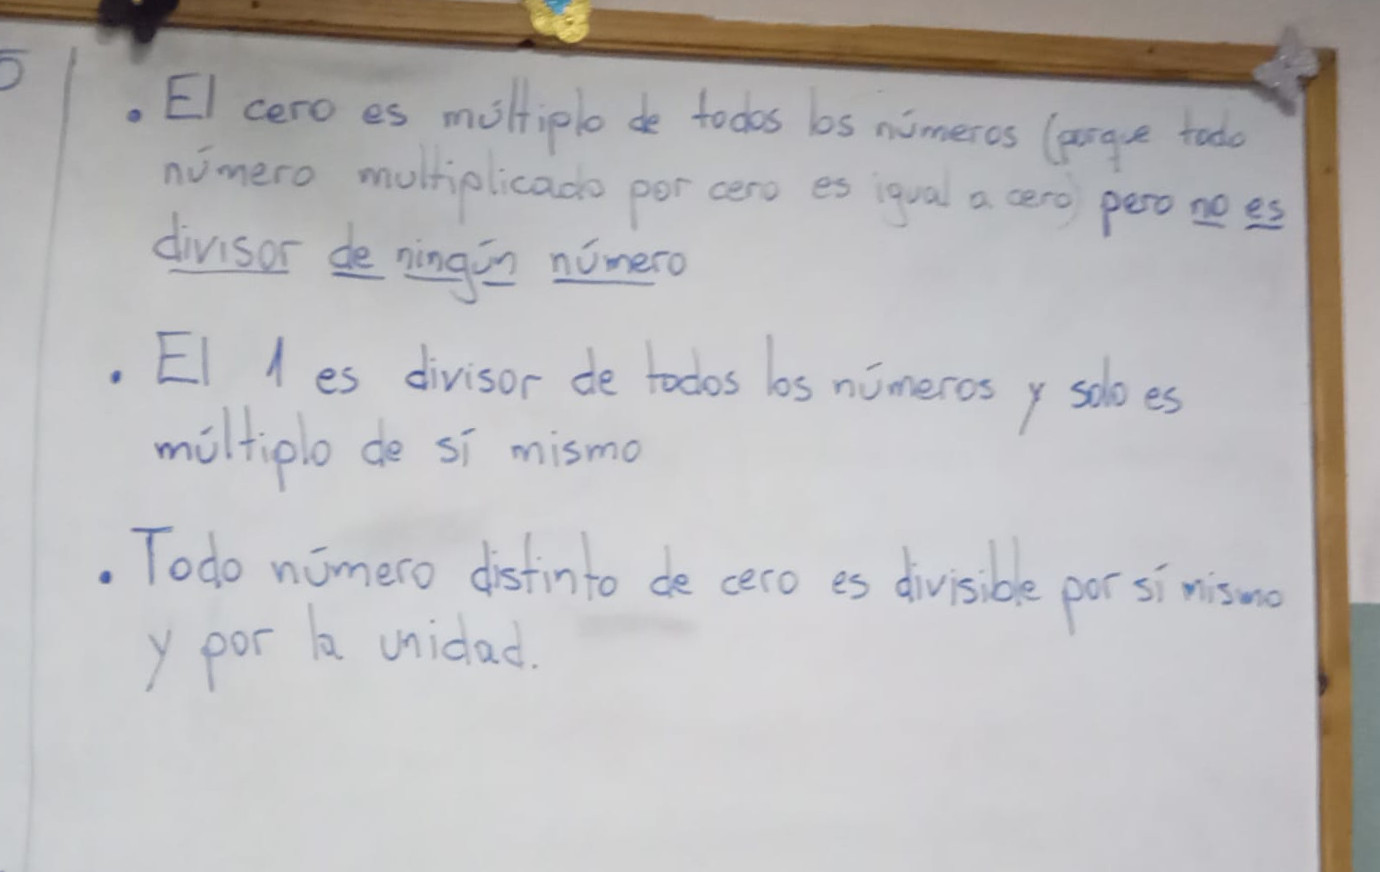 • El cero es múltiplo de todos los números (porque todo
número multiplicado por cero es igual a cero) pero no es
divisor de ningún número
• El 1 es divisor de todos los números y solo es
múltiplo de sí mismo
• Todo número distinto de cero es divisible por sí mismo
y por la unidad.